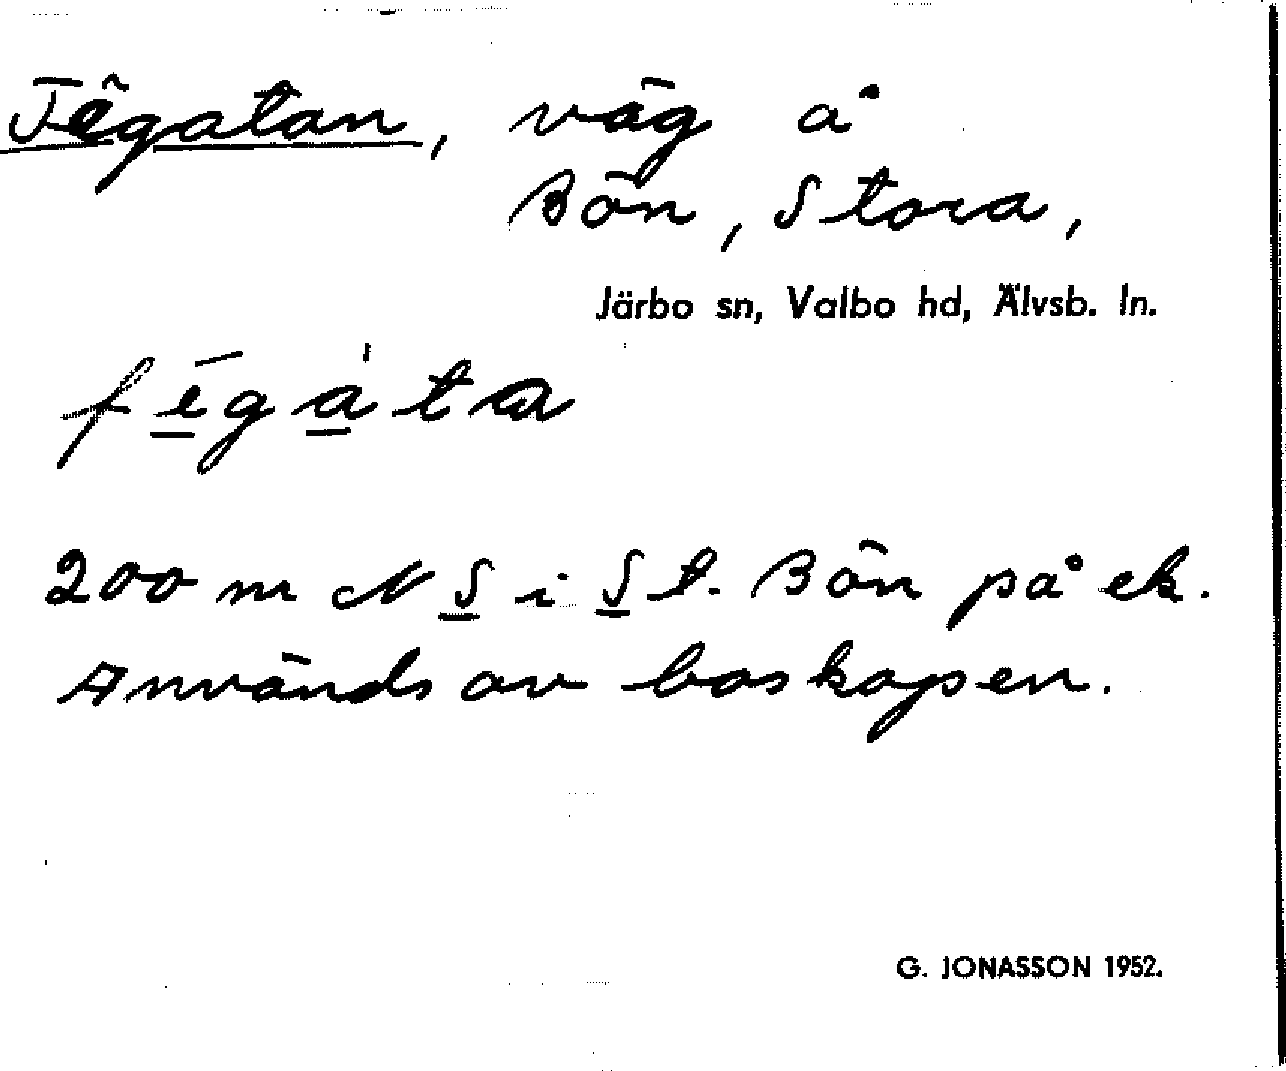 Fêgatan, väg å
Bön, Stora,
Järbo sn, Valbo hd, Älvsb. ln.
fē̲ga̲̍ta
200 m N S̲ i S̲t. Bön på ek.
Används av boskapen.
G. JONASSON 1952.